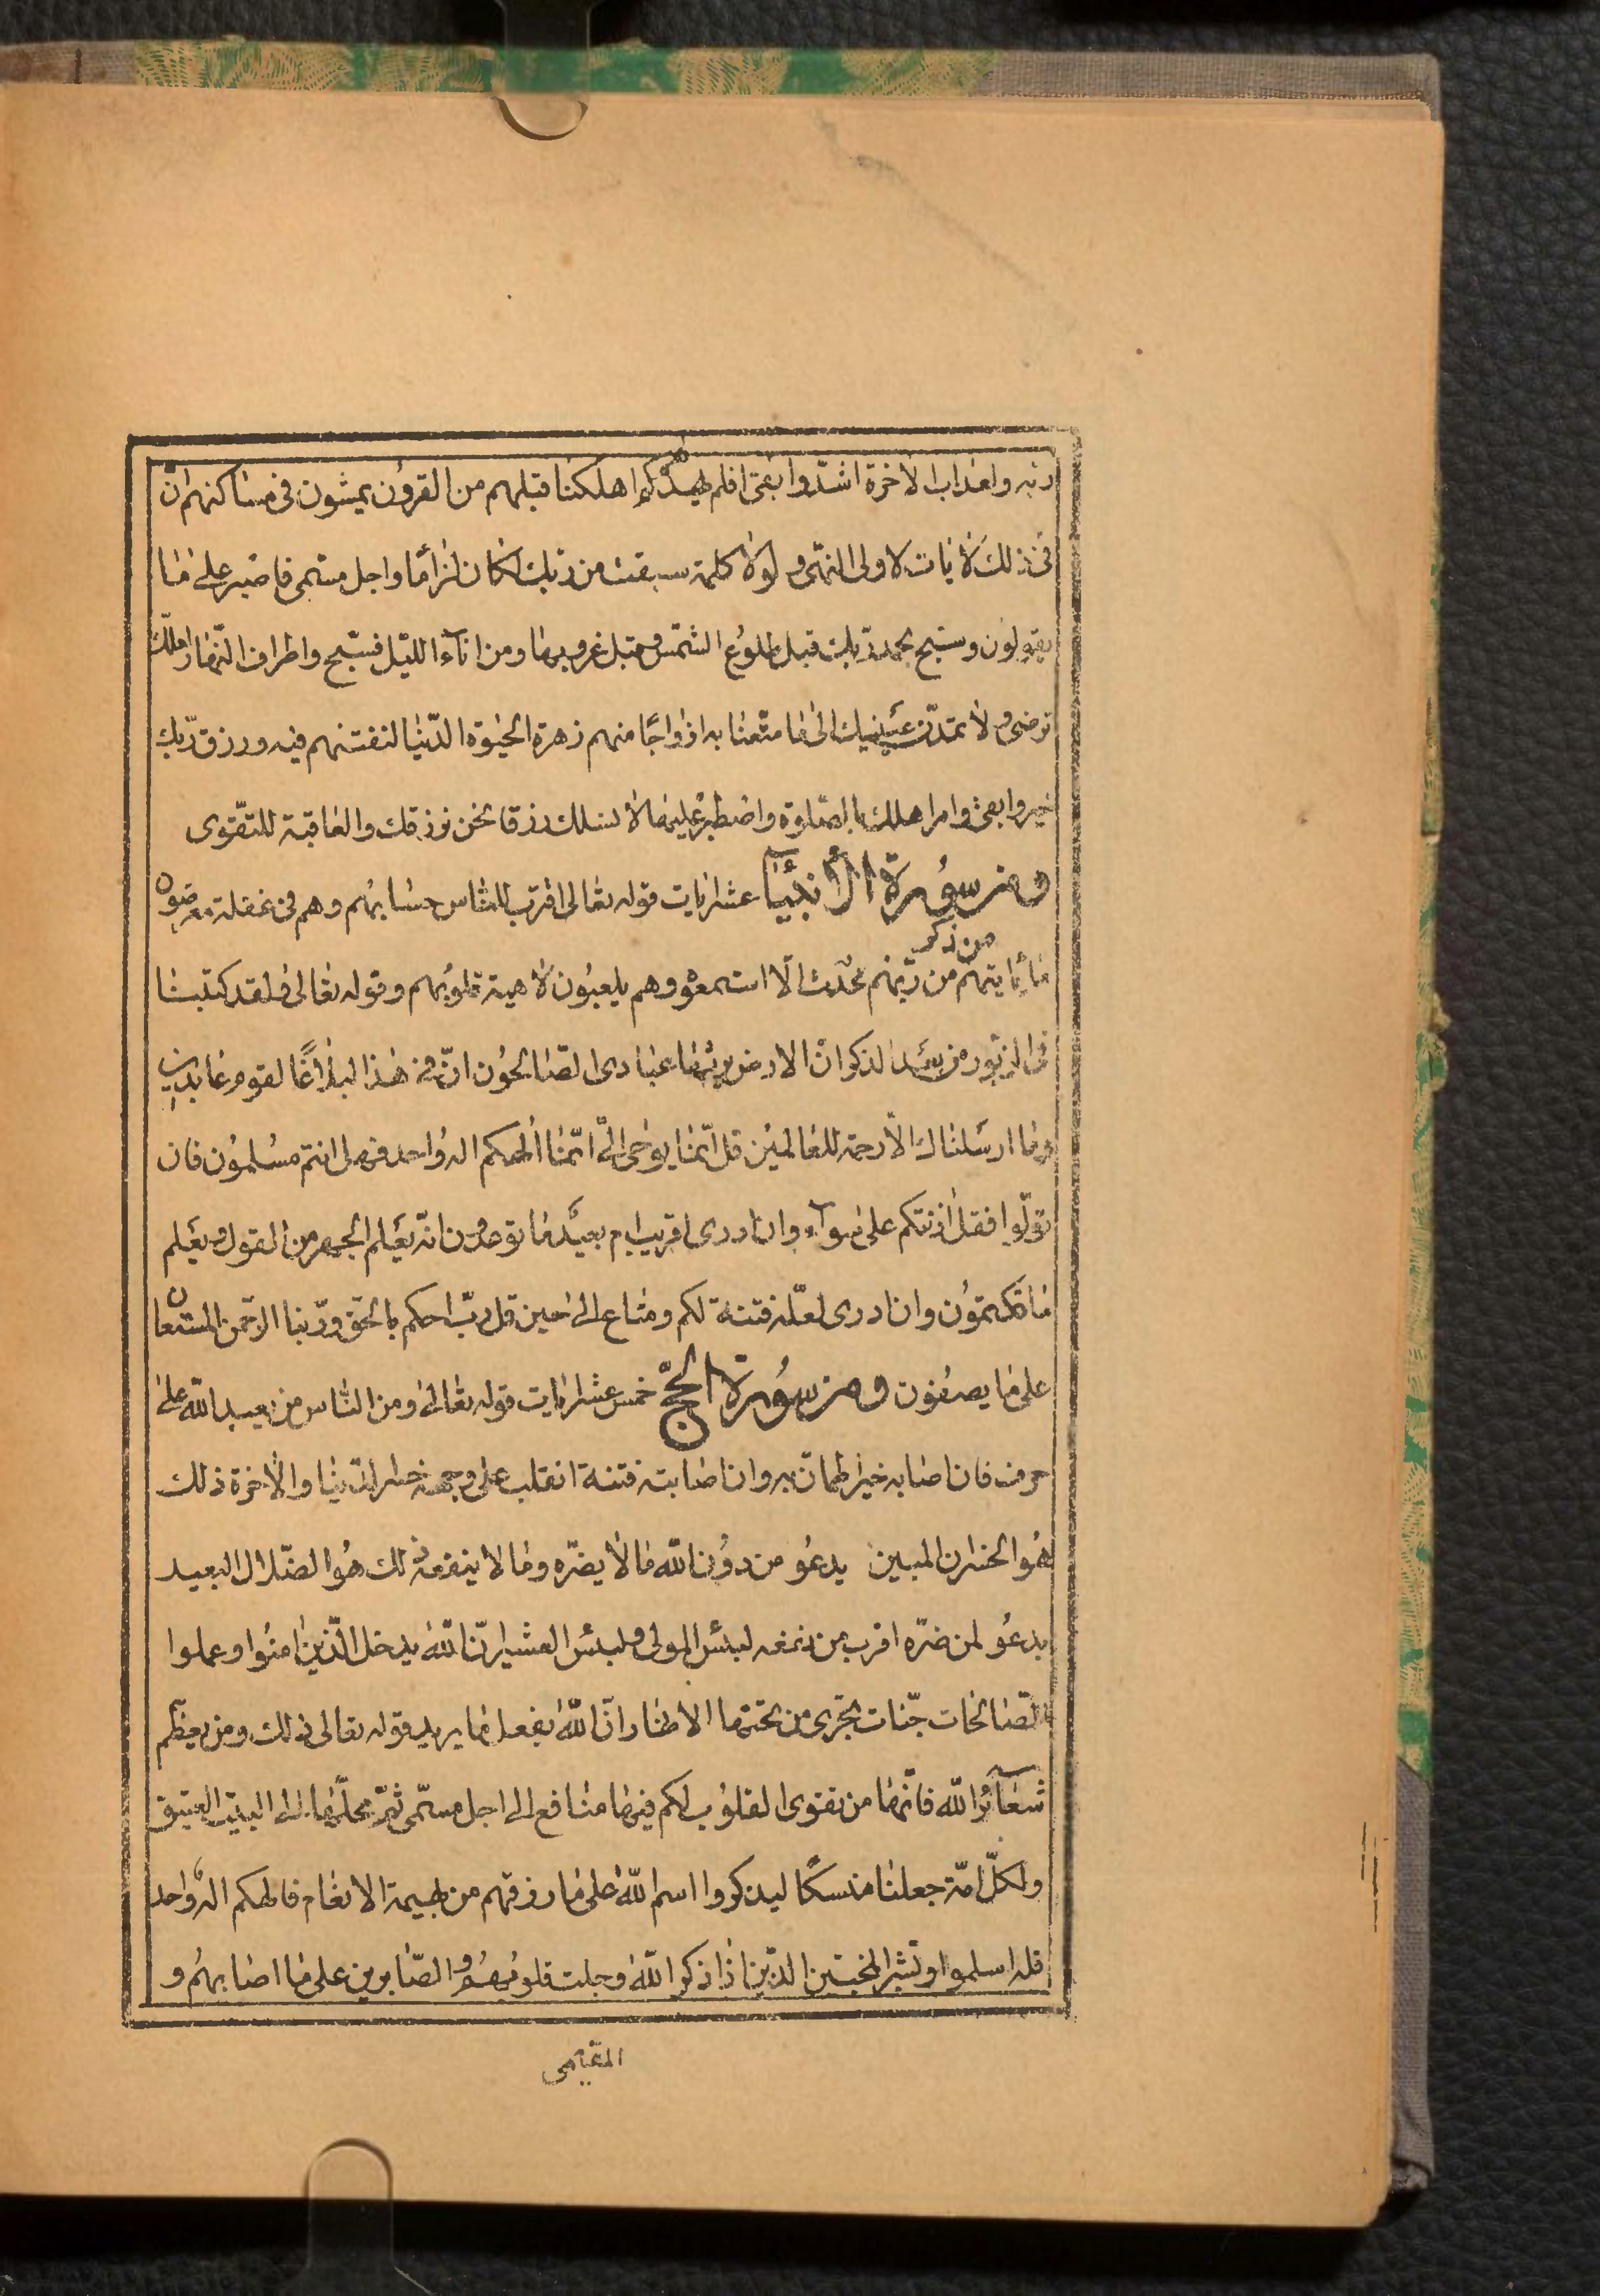 ربه ولعذاب الاخرة اشدّ وابقى افلم يهد لهم كم اهلكنا قبلهم من القرون يمشون فى مساكنهم انّ
فى ذلك لأيات لاولى النهى ولولا كلمة سبقت من ربك لكان لزامًا واجل مسمى فاصبر على ما
يقولون وسبح بحمد ربك قبل طلوع الشمس وقبل غروبها ومن اناۤء الليل فسبّح واطراف النهار لعلك
ترضى ولا تمدّن عينيك الى ما متّعنا به ازواجًا منهم زهرة الحيوة الدّنيا لنفتنهم فيه ورزق ربك
خير وابقى وامر اهلك بالصلوة واصطبر عليها لا نسئلك رزقا نحن نرزقك والعاقبة للتّقوى
ومن سورة الأنبياۤء عشر ايات قوله تعالى اقترب للناس حسابهم وهم فى غفلة معرضون
ما يأتيهم من ذكر من ربّهم محدث الّا استمعوه وهم يلعبون لاهية قلوبهم وقوله تعالى ولقد كتبنا
فى الزبور من بعد الذكر انّ الارض يرثها عبادى الصّالحون انّ فى هذا لبلاغًا لقوم عابدين
وما ارسلناك الّا رحمة للعالمين قل انّما يوحى الىّ انّما الهكم اله واحد فهل انتم مسلمون فان
تولّوا فقل اذنتكم على سواۤء وان ادرى اقريب ام بعيد ما توعدون انّه يعلم الجهر من القول ويعلم
ما تكتمون وان ادرى لعلّه فتنة لكم ومتاع الى حين قل ربّ احكم بالحق وربّنا الرّحمن المستعان
على ما يصفون ومن سورة الحجّ خمس عشر ايات قوله تعالى ومن الناس من يعبد الله على
حرف فان اصابه خير اطمانّ به وان اصابته فتنة انقلب على وجهه خسر الدّنيا والاخرة ذلك
هو الخسران المبين يدعو من دون الله ما لا يضرّه وما لا ينفعه ذلك هو الضّلال البعيد
يدعو لمن ضرّه اقرب من نفعه لبئس المولى ولبئس العشير انّ الله يدخل الّذين امنوا وعملوا
الصّالحات جنّات تجرى من تحتها الانهار انّ الله يفعل ما يريد قوله تعالى ذلك ومن يعظّم
شعاۤئر الله فانّها من تقوى القلوب لكم فيها منافع الى اجل مسمّى ثمّ محلّها الى البيت العتيق
ولكلّ امّة جعلنا منسكًا ليذكروا اسم الله على ما رزقهم من بهيمة الانعام فالهكم اله واحد
فله اسلموا وبشر المخبتين الذّين اذا ذكر الله وجلت قلوبهم والصّابرين على ما اصابهم و
المقيمى